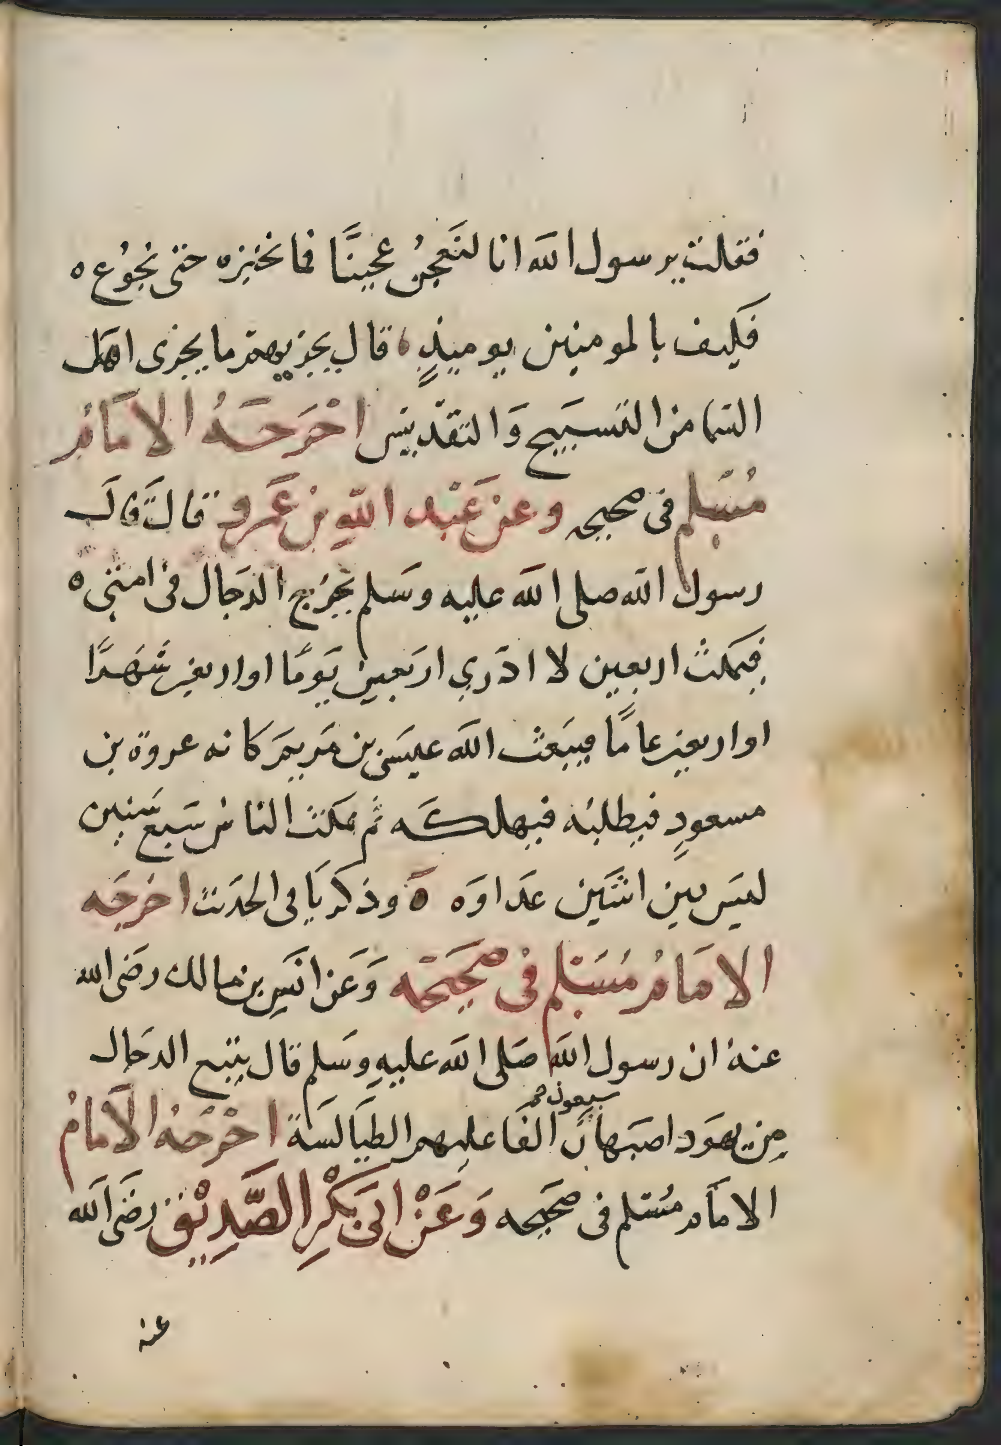 فقلت يرسول الله انا لنعجن عجينًا فما نختبزه حتى نجوع ه
فكيف بالمومنين يوميذٍ ه قال يجزيهم ما يجزى اهل
السما من التسبيح وَالتقديس اخرَجَهُ الامَامُ
مُسْلم فى صحيحه وعن عَبْد اللهِ بن عَمرو قالَ قالَ
رسول الله صلى الله عليه وسَلم يخرُج الدَجال فى امتى ه
فيمكث اربعين لا ادرى اربَعين يَومًا او اربعين شَهرًا
او اربعين عامًا فيبعَث الله عيسَى بن مَريمَ كانه عروة بن
مسعودٍ فيطلبُه فيهلكه ثم يمكث الناسُ سَبع سَنين
ليسَ بين اثنَين عدَاوَه ه وذكر يَا فى الحدَيث اخرجَه
الامَامُ مُسْلم فى صَحيحَه وَعَن انَسِ بن مالك رضَى الله
عنهُ ان رسول الله صَلى الله عليهِ وسَلم قال يتبع الدجَال
مِن يهوَد اصبَهان سبعون الفَا عليهم الطيَالسَة اخرجَهُ الامَامُ
الامَام مُسْلم فى صَحيحه وَعَنْ ابى بَكْرِ الصَّدِيْق رضَى الله
عنه